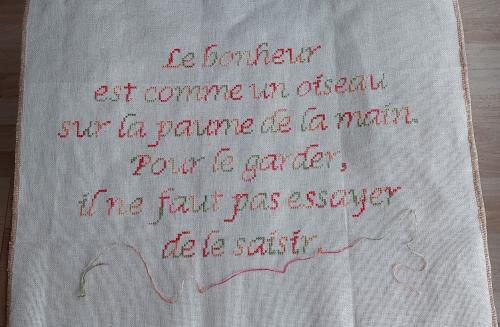 Le bonheur
est comme un oiseau
sur la paume de la main.
Pour le garder,
il ne faut pas essayer
de le saisir.